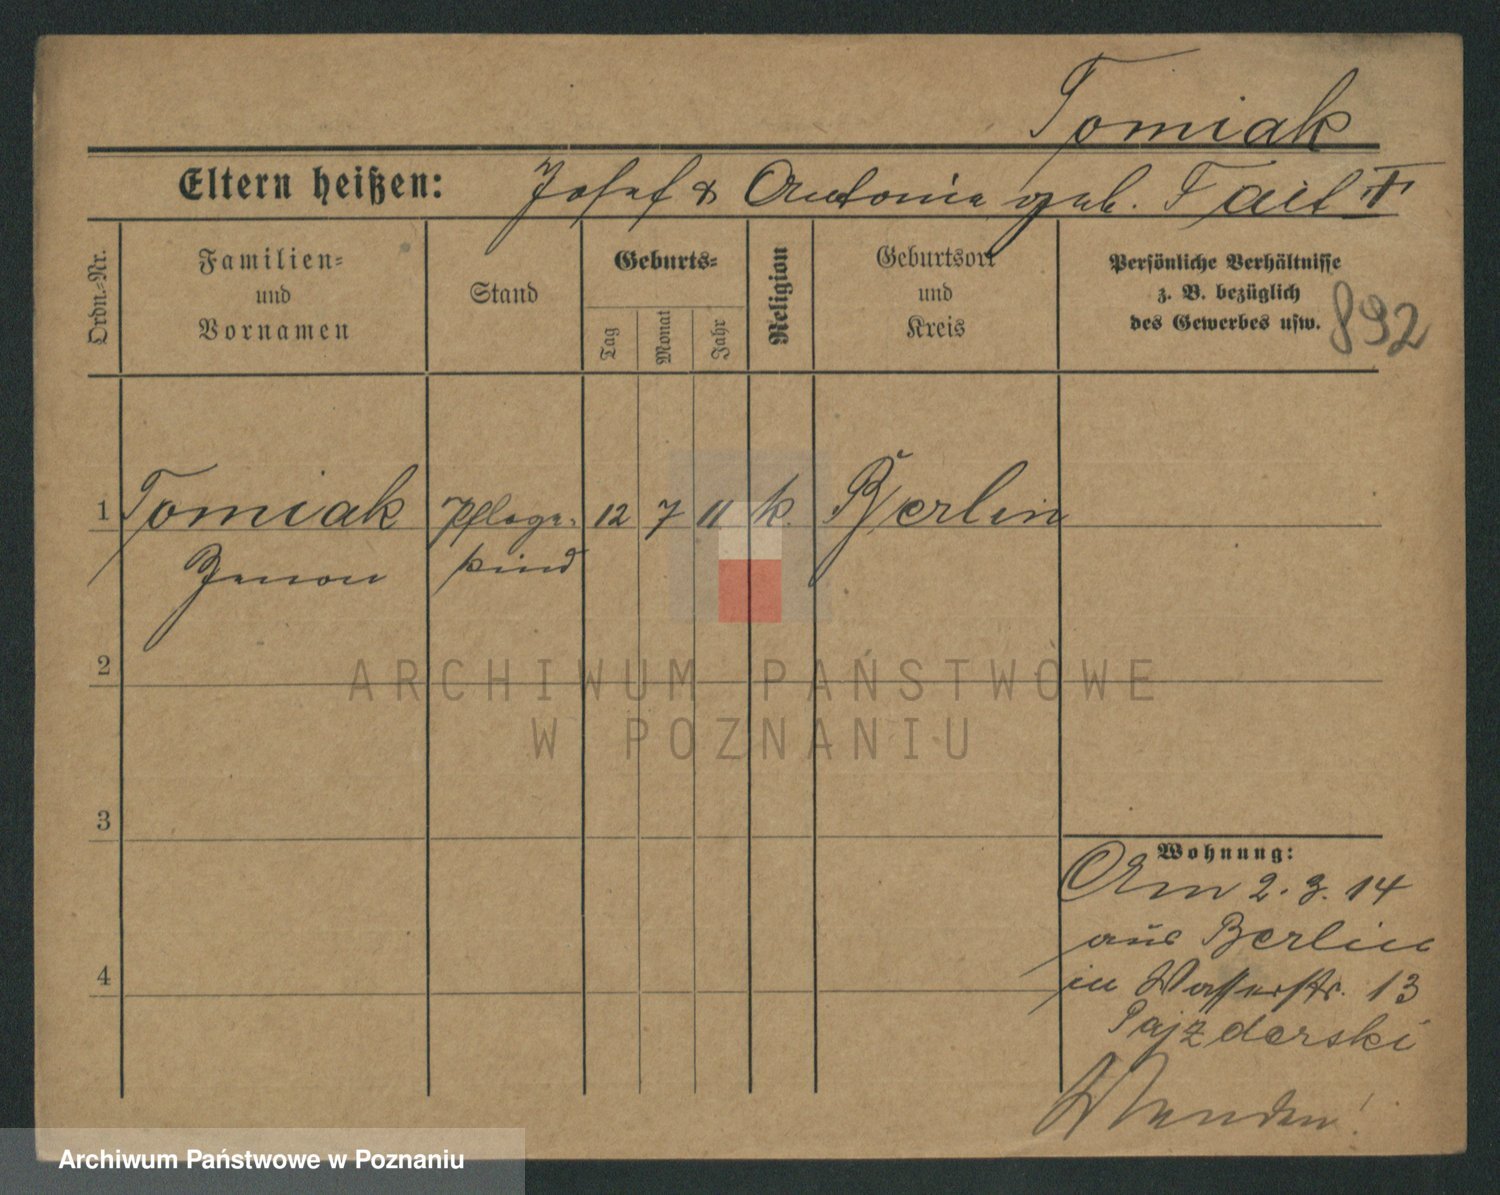 Tomiak
Eltern heißen: Josef & Antonie geb.
Ordn.-Nr.
Familien-
und
Vornamen
Stand
Geburts-
Tag
Monat
Jahr
Religion
Geburtsort
und
Kreis
Persönliche Verhältnisse
z. B. bezüglich
des Gewerbes usw.
892
1 Tomiak Pflege- 12 7 11 k. Berlin
Zenon kind
2
ARCHIWUM PAŃSTWOWE
W POZNANIU
3
Wohnung:
Am 2. 3. 14
aus Berlin
4
in Wasserstr. 13
Pajzderski
Wenden!
Archiwum Państwowe w Poznaniu